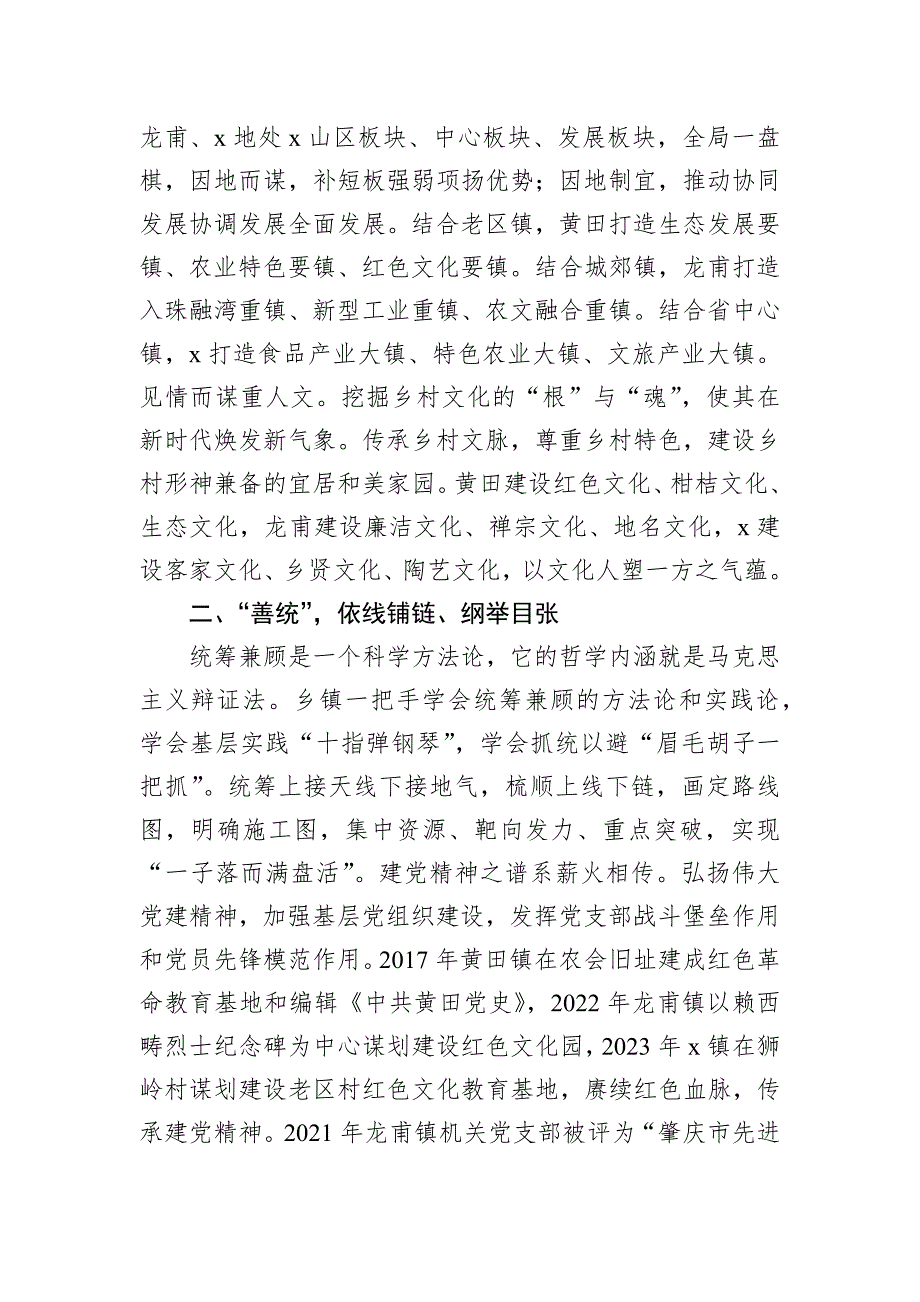 龙甫、x 地处 x 山区板块、中心板块、发展板块，全局一盘
棋，因地而谋，补短板强弱项扬优势；因地制宜，推动协同
发展协调发展全面发展。结合老区镇，黄田打造生态发展要
镇、农业特色要镇、红色文化要镇。结合城郊镇，龙甫打造
入珠融湾重镇、新型工业重镇、农文融合重镇。结合省中心
镇，x 打造食品产业大镇、特色农业大镇、文旅产业大镇。
见情而谋重人文。挖掘乡村文化的“根”与“魂”，使其在
新时代焕发新气象。传承乡村文脉，尊重乡村特色，建设乡
村形神兼备的宜居和美家园。黄田建设红色文化、柑桔文化、
生态文化，龙甫建设廉洁文化、禅宗文化、地名文化，x 建
设客家文化、乡贤文化、陶艺文化，以文化人塑一方之气蕴。
二、“善统”，依线铺链、纲举目张
统筹兼顾是一个科学方法论，它的哲学内涵就是马克思
主义辩证法。乡镇一把手学会统筹兼顾的方法论和实践论，
学会基层实践“十指弹钢琴”，学会抓统以避“眉毛胡子一
把抓”。统筹上接天线下接地气，梳顺上线下链，画定路线
图，明确施工图，集中资源、靶向发力、重点突破，实现
“一子落而满盘活”。建党精神之谱系薪火相传。弘扬伟大
党建精神，加强基层党组织建设，发挥党支部战斗堡垒作用
和党员先锋模范作用。2017 年黄田镇在农会旧址建成红色革
命教育基地和编辑《中共黄田党史》，2022 年龙甫镇以赖西
畴烈士纪念碑为中心谋划建设红色文化园，2023 年 x 镇在狮
岭村谋划建设老区村红色文化教育基地，赓续红色血脉，传
承建党精神。2021 年龙甫镇机关党支部被评为“肇庆市先进